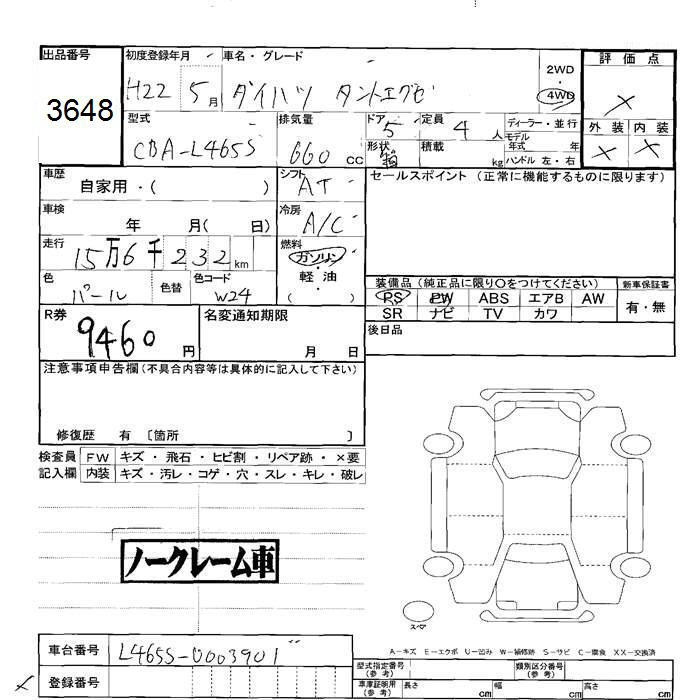 出品番号 初度登録年月 車名・グレード 評価点
3648 H22 5月 ダイハツ タントエグゼ 2WD・4WD ×
型式 排気量 ドア 定員 ディーラー・並行 外装 内装
CBA-L465S 660cc 5 4人 モデル年式 年 × ×
形状 箱 積載 kg ハンドル 左・右
車歴 シフト セールスポイント (正常に機能するものに限ります)
自家用・( ) AT
車検 冷房
年 月( 日) A/C
走行 燃料
15万6千232km ガソリン・軽油
色 色替 色コード ( )
パール W24
装備品 (純正品に限り〇をつけてください) 新車保証書
PS PW ABS エアB AW 有・無
SR ナビ TV カワ
R券 名変通知期限 後日品
9460円 月 日
注意事項申告欄(不具合内容等は具体的に記入して下さい)
修復歴 有 〔箇所 〕
検査員 FW キズ・飛石・ヒビ割・リペア跡・×要
記入欄 内装 キズ・汚レ・コゲ・穴・スレ・キレ・破レ
ノークレーム車
スペア
A-キズ E-エクボ U-凹み W-補修跡 S-サビ C-腐食 XX-交換済
車台番号 L465S-0003901
型式指定番号(参考) 類別区分番号(参考)
× 登録番号
車庫証明用(参考) 長さ cm 幅 cm 高さ cm